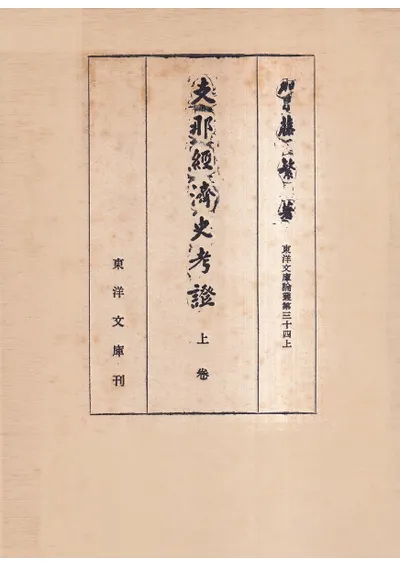 加藤繁著
東洋文庫論叢第三十四上
支那經濟史考證
上卷
東洋文庫刊